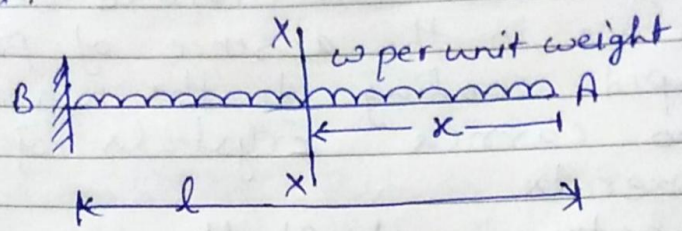 X
w per unit weight
B
A
x
X
l